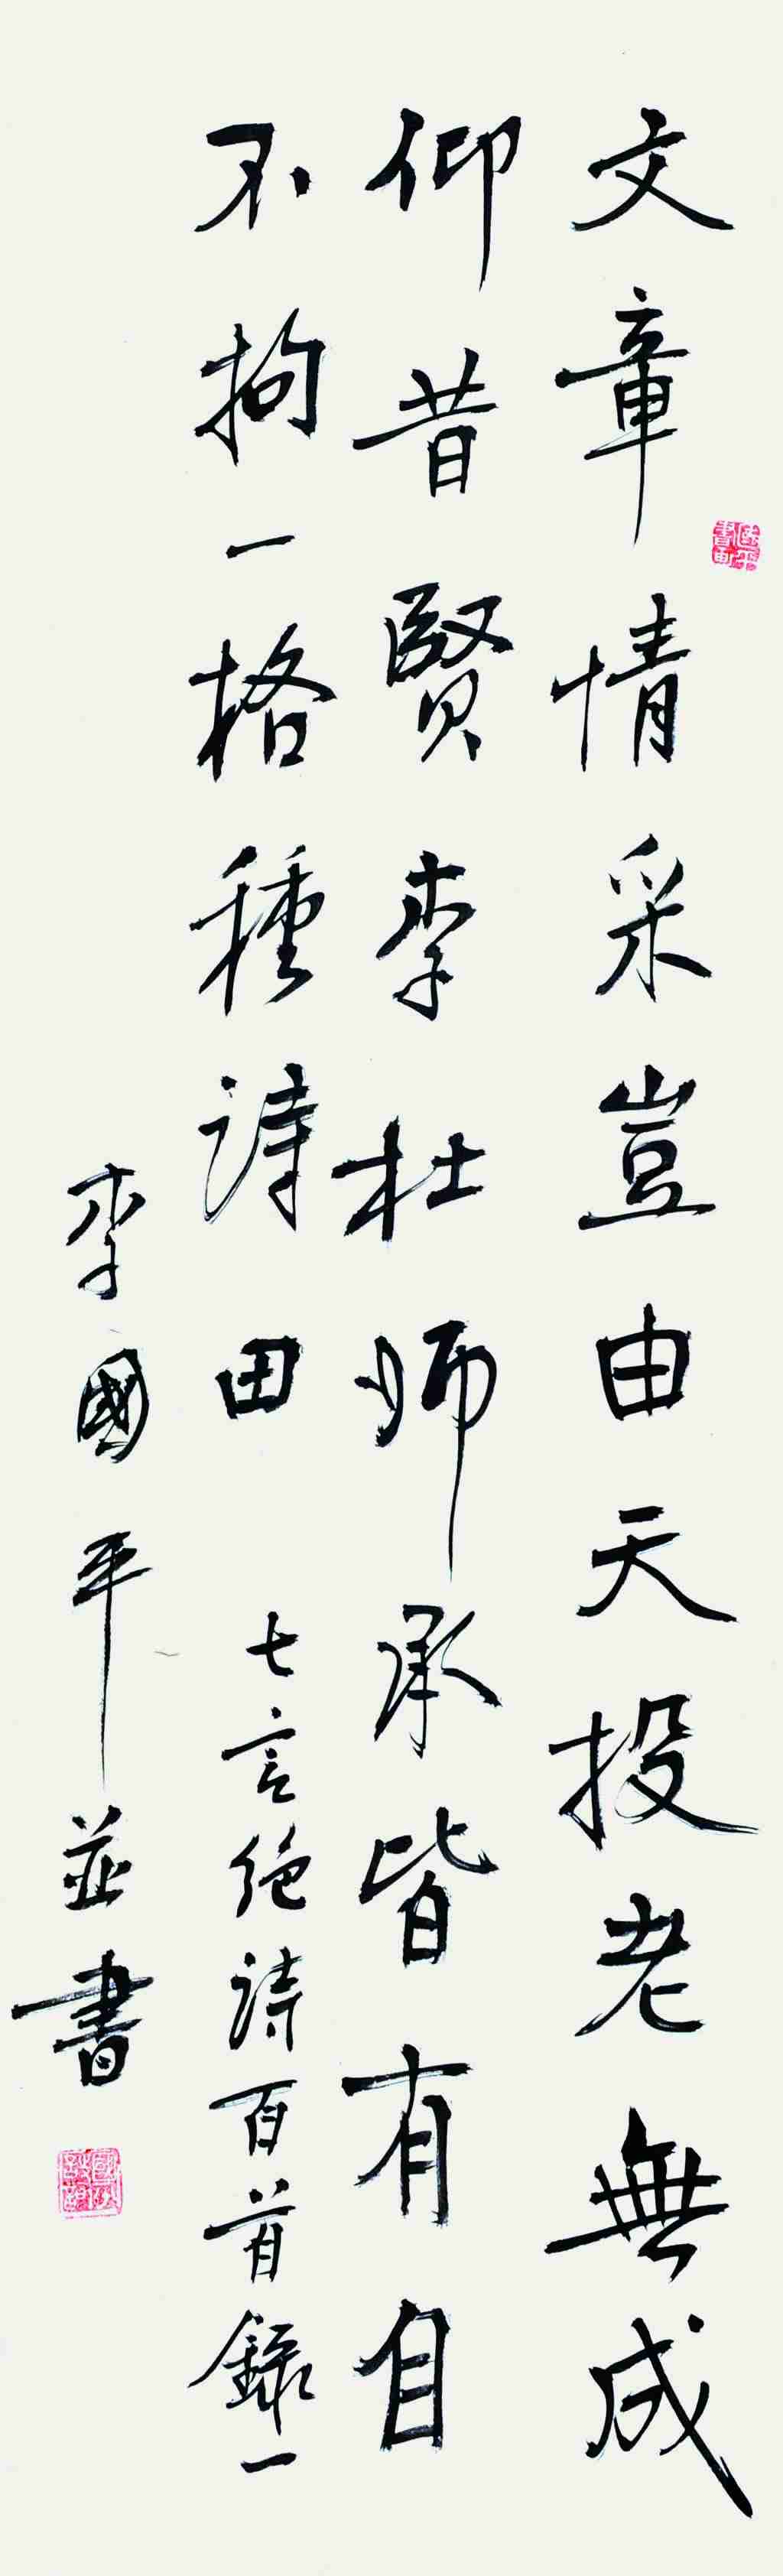 文章情采豈由天投老無成
仰昔賢李杜師承皆有自
不拘一格種詩田 七言絶詩百首録一
李國平並書